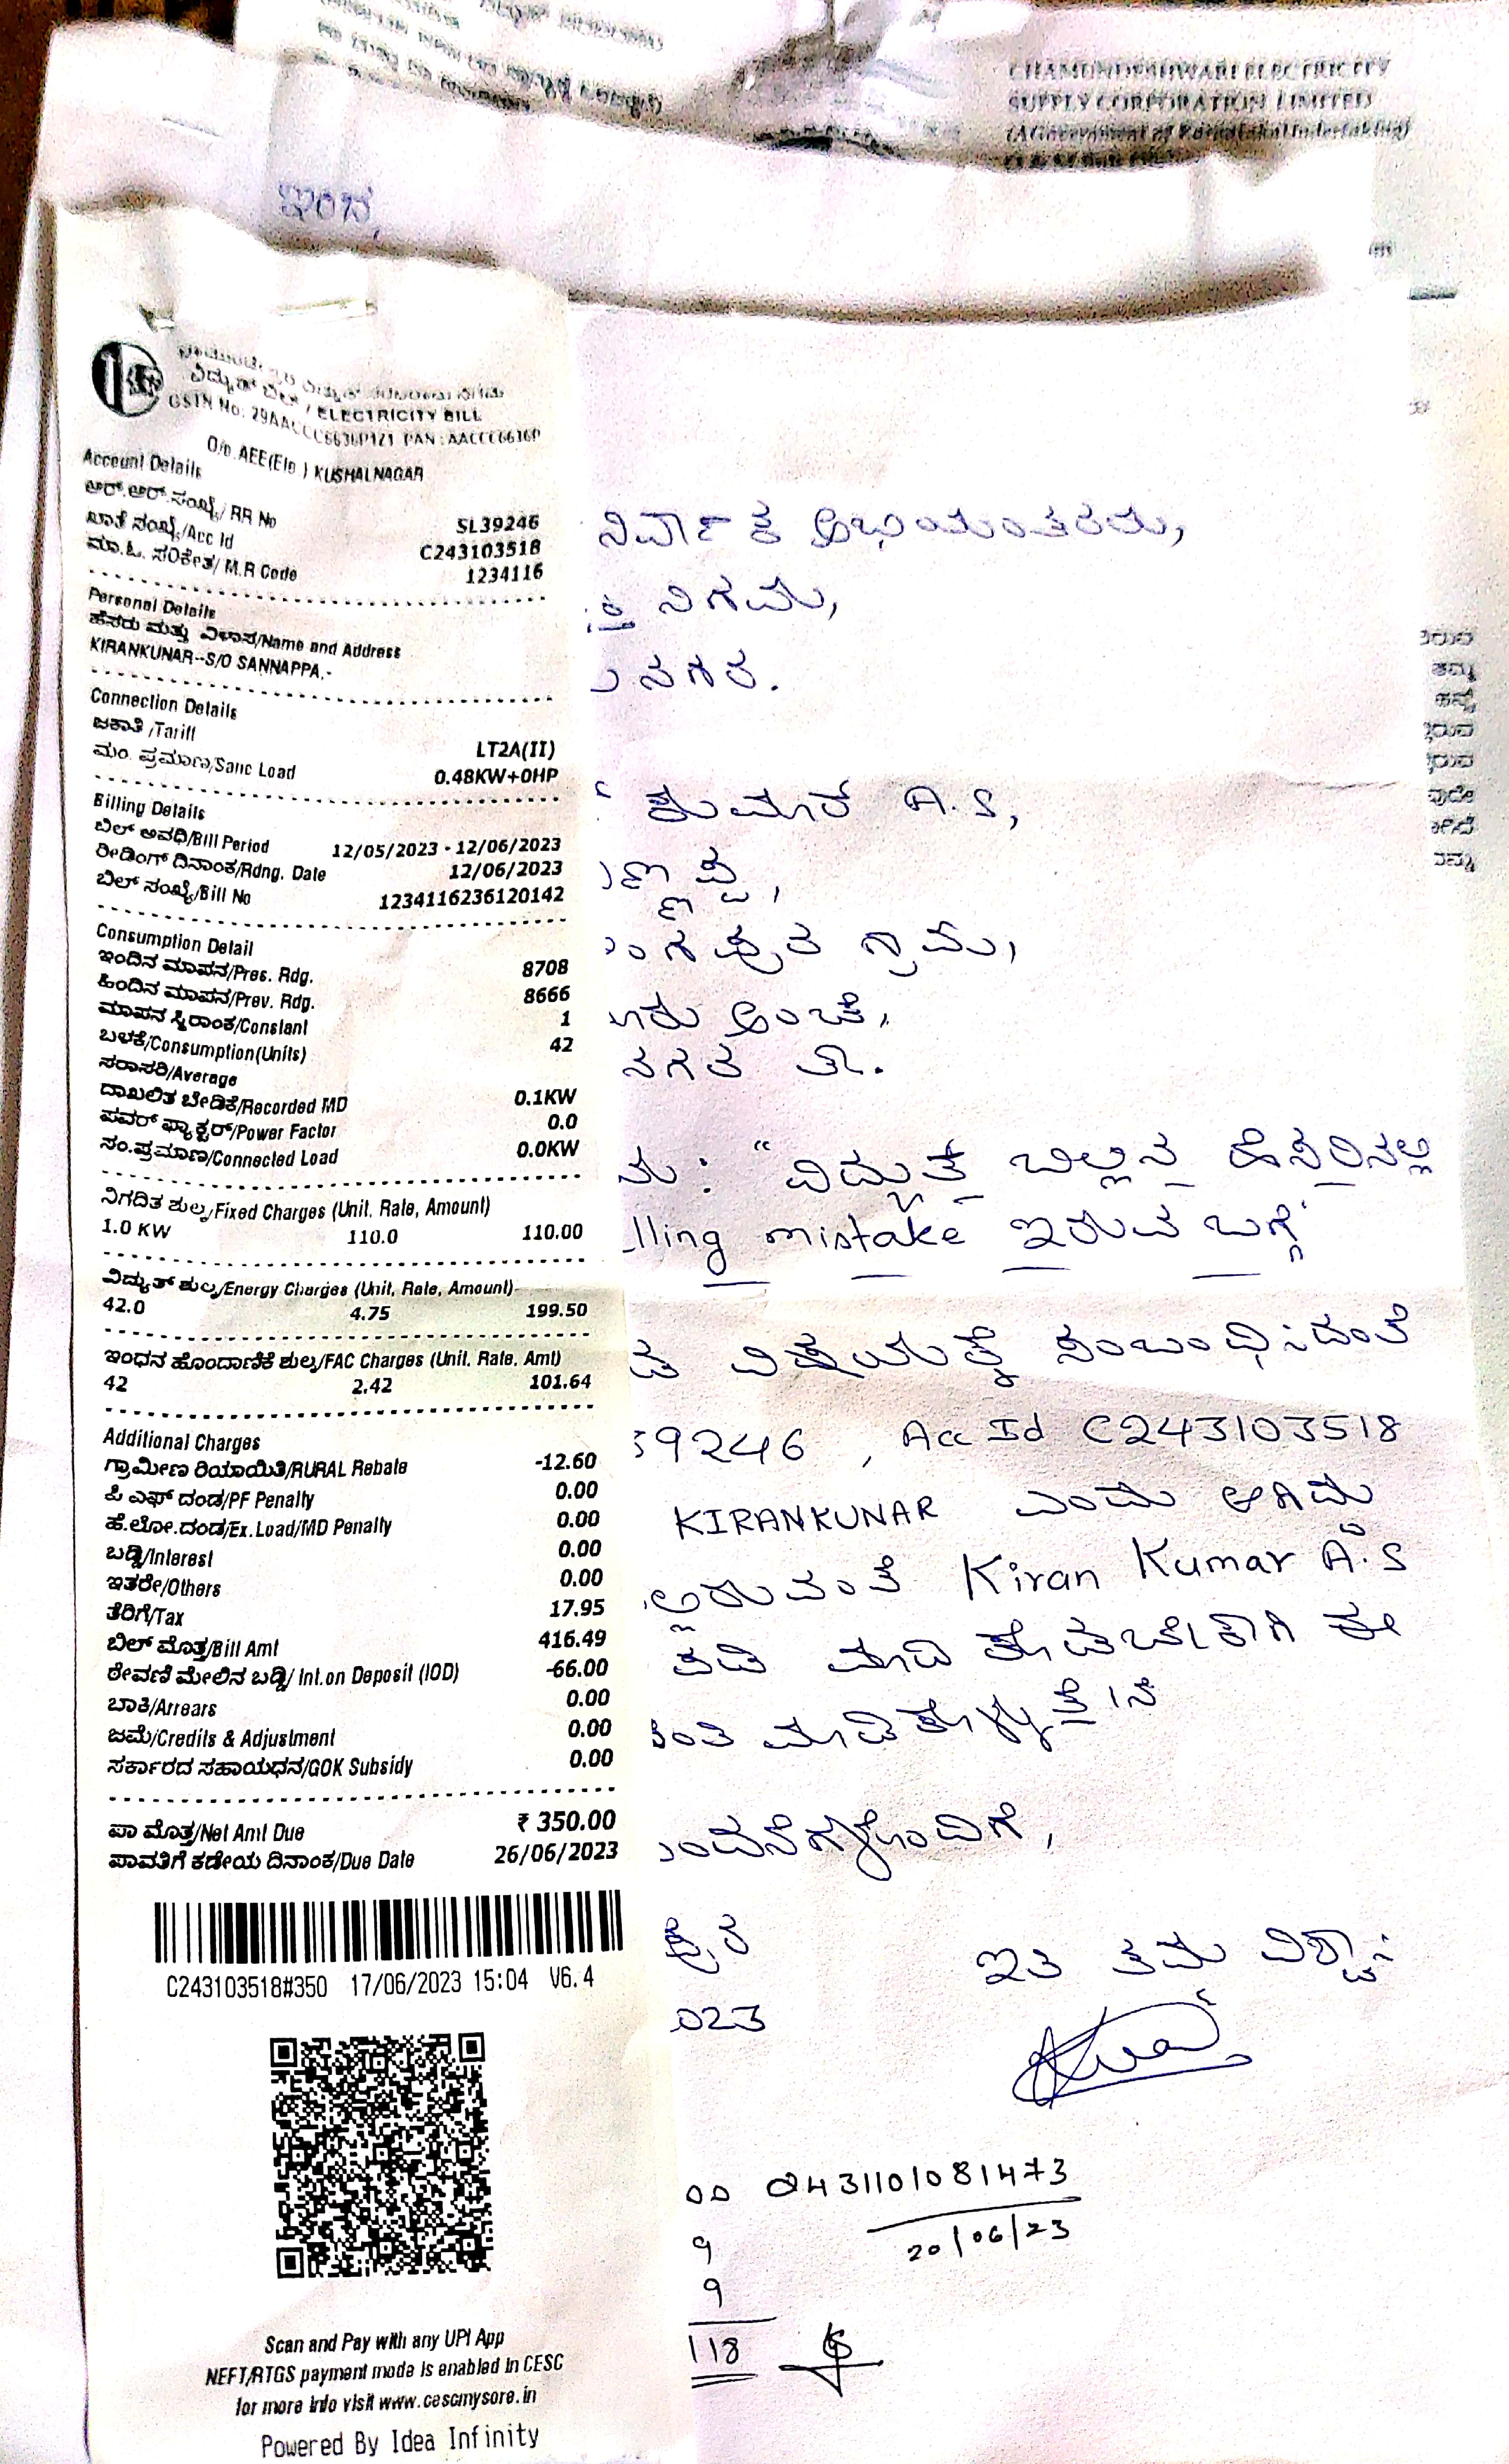 ಇಂದ,
CHAMUNDESHWARI ELECTRICITY
SUPPLY CORPORATION LIMITED
(A Government of Karnataka Undertaking)
ವಿದ್ಯುತ್ ಬಿಲ್ / ELECTRICITY BILL
GSTN No: 29AACCC6636P1Z1 PAN : AACCC6636P
O/o.AEE(Ele ) KUSHALNAGAR
Account Details
ಆರ್.ಆರ್.ಸಂಖ್ಯೆ/ RR No SL39246
ಖಾತೆ ಸಂಖ್ಯೆ/Acc Id C243103518
ಮಾ.ಓ. ಸಂಕೇತ/ M.R Code 1234116
Personal Details
ಹೆಸರು ಮತ್ತು ವಿಳಾಸ/Name and Address
KIRANKUNAR--S/O SANNAPPA,-
Connection Details
ಜಕಾತಿ /Tariff LT2A(II)
ಮಂ. ಪ್ರಮಾಣ/Sanc Load 0.48KW+0HP
Billing Details
ಬಿಲ್ ಅವಧಿ/Bill Period 12/05/2023 - 12/06/2023
ರೀಡಿಂಗ್ ದಿನಾಂಕ/Rdng. Date 12/06/2023
ಬಿಲ್ ಸಂಖ್ಯೆ/Bill No 1234116236120142
Consumption Detail
ಇಂದಿನ ಮಾಪನ/Pres. Rdg. 8708
ಹಿಂದಿನ ಮಾಪನ/Prev. Rdg. 8666
ಮಾಪನ ಸ್ಥಿರಾಂಕ/Constant 1
ಬಳಕೆ/Consumption(Units) 42
ಸರಾಸರಿ/Average
ದಾಖಲಿತ ಬೇಡಿಕೆ/Recorded MD 0.1KW
ಪವರ್ ಫ್ಯಾಕ್ಟರ್/Power Factor 0.0
ಸಂ.ಪ್ರಮಾಣ/Connected Load 0.0KW
ನಿಗದಿತ ಶುಲ್ಕ/Fixed Charges (Unit, Rate, Amount)
1.0 KW 110.0 110.00
ವಿದ್ಯುತ್ ಶುಲ್ಕ/Energy Charges (Unit, Rate, Amount)
42.0 4.75 199.50
ಇಂಧನ ಹೊಂದಾಣಿಕೆ ಶುಲ್ಕ/FAC Charges (Unit, Rate, Amt)
42 2.42 101.64
Additional Charges
ಗ್ರಾಮೀಣ ರಿಯಾಯಿತಿ/RURAL Rebate -12.60
ಪಿ ಎಫ್ ದಂಡ/PF Penalty 0.00
ಹೆ.ಲೋ.ದಂಡ/Ex.Load/MD Penalty 0.00
ಬಡ್ಡಿ/Interest 0.00
ಇತರೇ/Others 0.00
ತೆರಿಗೆ/Tax 17.95
ಬಿಲ್ ಮೊತ್ತ/Bill Amt 416.49
ಠೇವಣಿ ಮೇಲಿನ ಬಡ್ಡಿ/ Int.on Deposit (IOD) -66.00
ಬಾಕಿ/Arrears 0.00
ಜಮೆ/Credits & Adjustment 0.00
ಸರ್ಕಾರದ ಸಹಾಯಧನ/GOK Subsidy 0.00
ಪಾ ಮೊತ್ತ/Net Amt Due ₹ 350.00
ಪಾವತಿಗೆ ಕಡೇಯ ದಿನಾಂಕ/Due Date 26/06/2023
C243103518#350 17/06/2023 15:04 V6.4
Scan and Pay with any UPI App
NEFT/RTGS payment mode is enabled in CESC
for more info visit www.cescmysore.in
Powered By Idea Infinity
ನಿರ್ವಾಹಕ ಅಭಿಯಂತರರು,
ನಿಗಮ,
ನಗರ.
ಕುಮಾರ್ A.S,
ಣ್ಣಪ್ಪ,
ಗಪುರ ಗ್ರಾಮ,
ಅಂಚೆ,
ನಗರ ತಾ.
: "ವಿದ್ಯುತ್ ಬಿಲ್ಲಿನ ಹೆಸರಿನಲ್ಲಿ
lling mistake ಇರುವ ಬಗ್ಗೆ"
ವಿಷಯಕ್ಕೆ ಸಂಬಂಧಿಸಿದಂತೆ
39246 , Acc Id C243103518
KIRANKUNAR ಎಂದು ಆಗಿದ್ದು
ಲ್ಲಿರುವಂತೆ Kiran Kumar A.S
ಮಾಡಿ ಕೊಡಬೇಕಾಗಿ ಈ
ಮಾಡಿಕೊಳ್ಳುತ್ತೇನೆ
ವಂದನೆಗಳೊಂದಿಗೆ,
ಇತಿ ತಮ್ಮ ವಿಶ್ವಾಸಿ
023
00 2431101081473
20/06/23
9
9
118